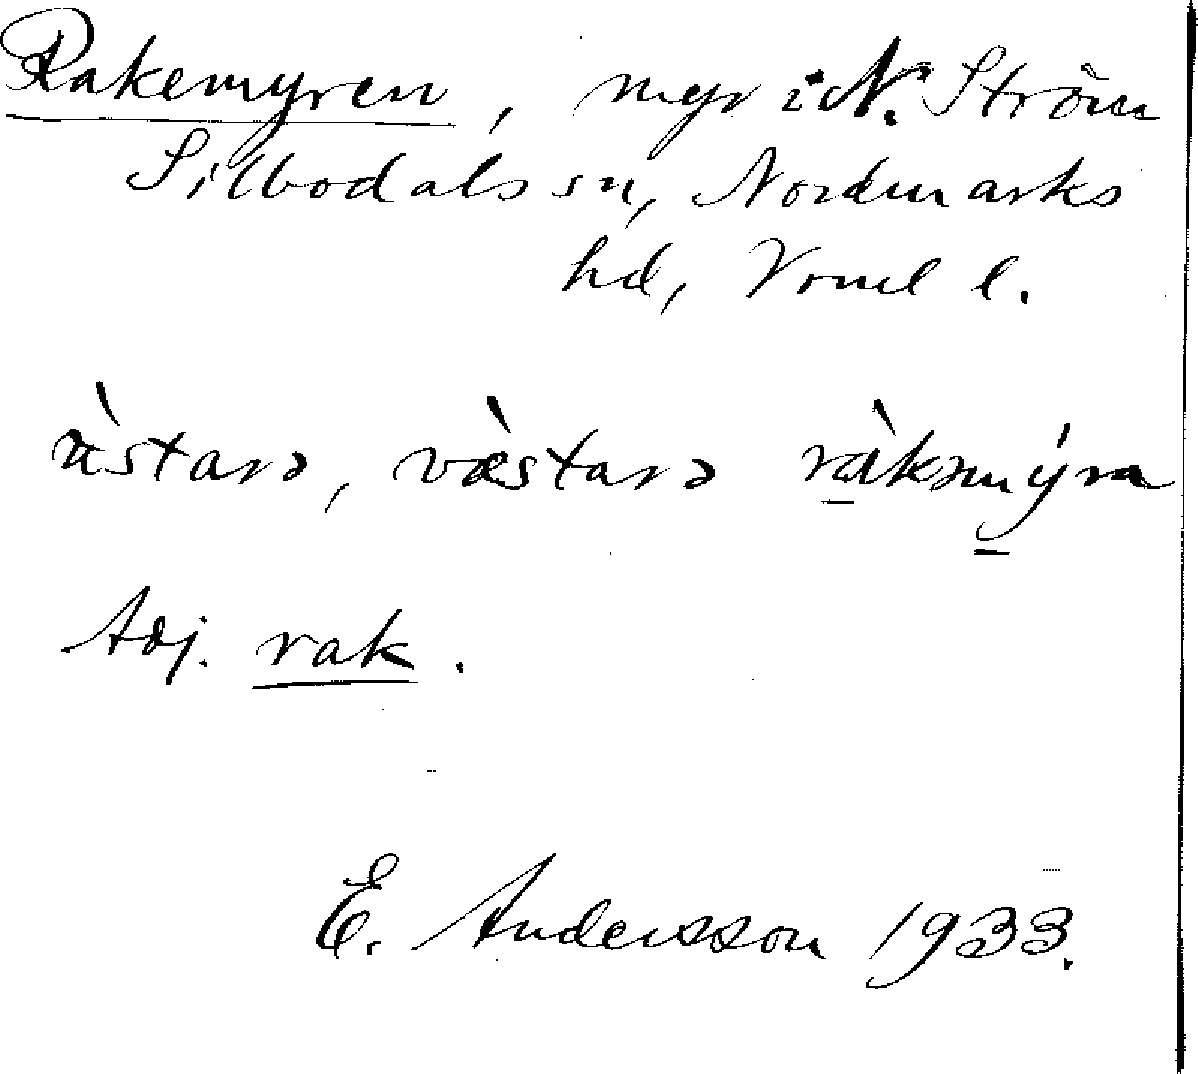 Rakemyren, myr i N. Ström
Silbodals sn, Nordmarks
hd, Vrml l.
ùstarə, væ̀starə ràkəmýra
Adj. rak.
E. Andersson 1933.